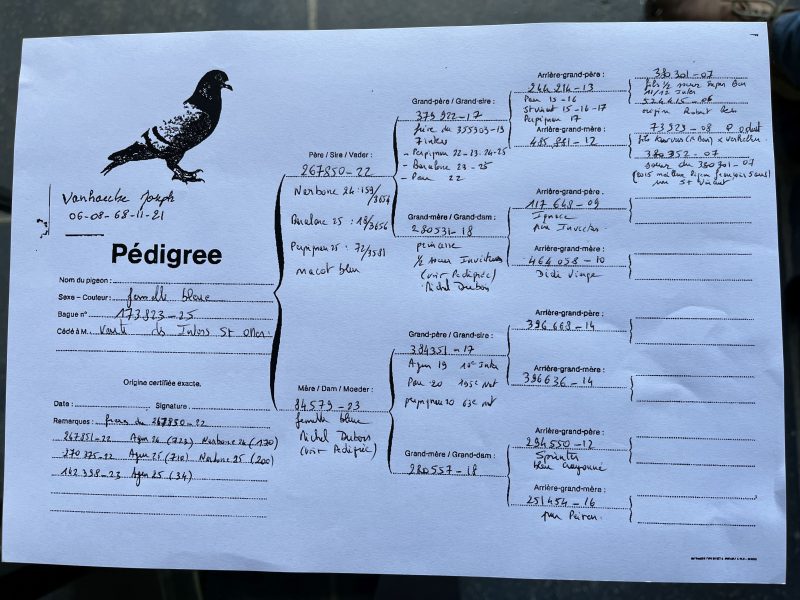 Vanhaecke Joseph
06-08-68-11-21
Pédigree
Nom du pigeon :
Sexe – Couleur : femelle bleue
Bague n° 173823-25
Cédé à M. Vente des Inters St
Origine certifiée exacte.
Date : Signature :
Remarques : frères du 267850-22
267851-22 Agen 24 (723) Narbone 24 (170)
270375-22 Agen 25 (718) Narbone 25 (200)
142398-23 Agen 25 (34)
Père / Sire / Vader :
267850-22
Narbone 24 : 159/3654
Barcelone 25 : 18/3656
Perpignan 25 : 72/3581
macot bleu
Mère / Dam / Moeder :
84579-23
femelle bleue
Michel Dubois
(voir Pedigree)
Grand-père / Grand-sire :
379922-17
frère du 355909-19
7 inters
- Perpignan 22-23-24-25
- Barcelone 23-25
- Pau 22
Grand-mère / Grand-dam :
280531-18
½ sœur
(voir Pedigree)
Michel Dubois
Grand-père / Grand-sire :
384351-17
Agen 19 Inter
Pau 20 195e nat
perpignan 20 63e nat
Grand-mère / Grand-dam :
280557-18
Arrière-grand-père :
244214-13
Pau 15-16
St vincent 15-16-17
Perpignan 17
Arrière-grand-mère :
485881-12
Arrière-grand-père :
117668-09
Ignace
par
Arrière-grand-mère :
464058-10
Didi Vierge
Arrière-grand-père :
396668-14
Arrière-grand-mère :
396636-14
Arrière-grand-père :
294550-12
Sprinter
bleu crayonné
Arrière-grand-mère :
251454-16
par
380301-07
fils ½ sœur Super Bon
11/12 Inter
524615-06
origine Robert Ben
73929-08
380752-07
sœur du 380301-07
St Vincent